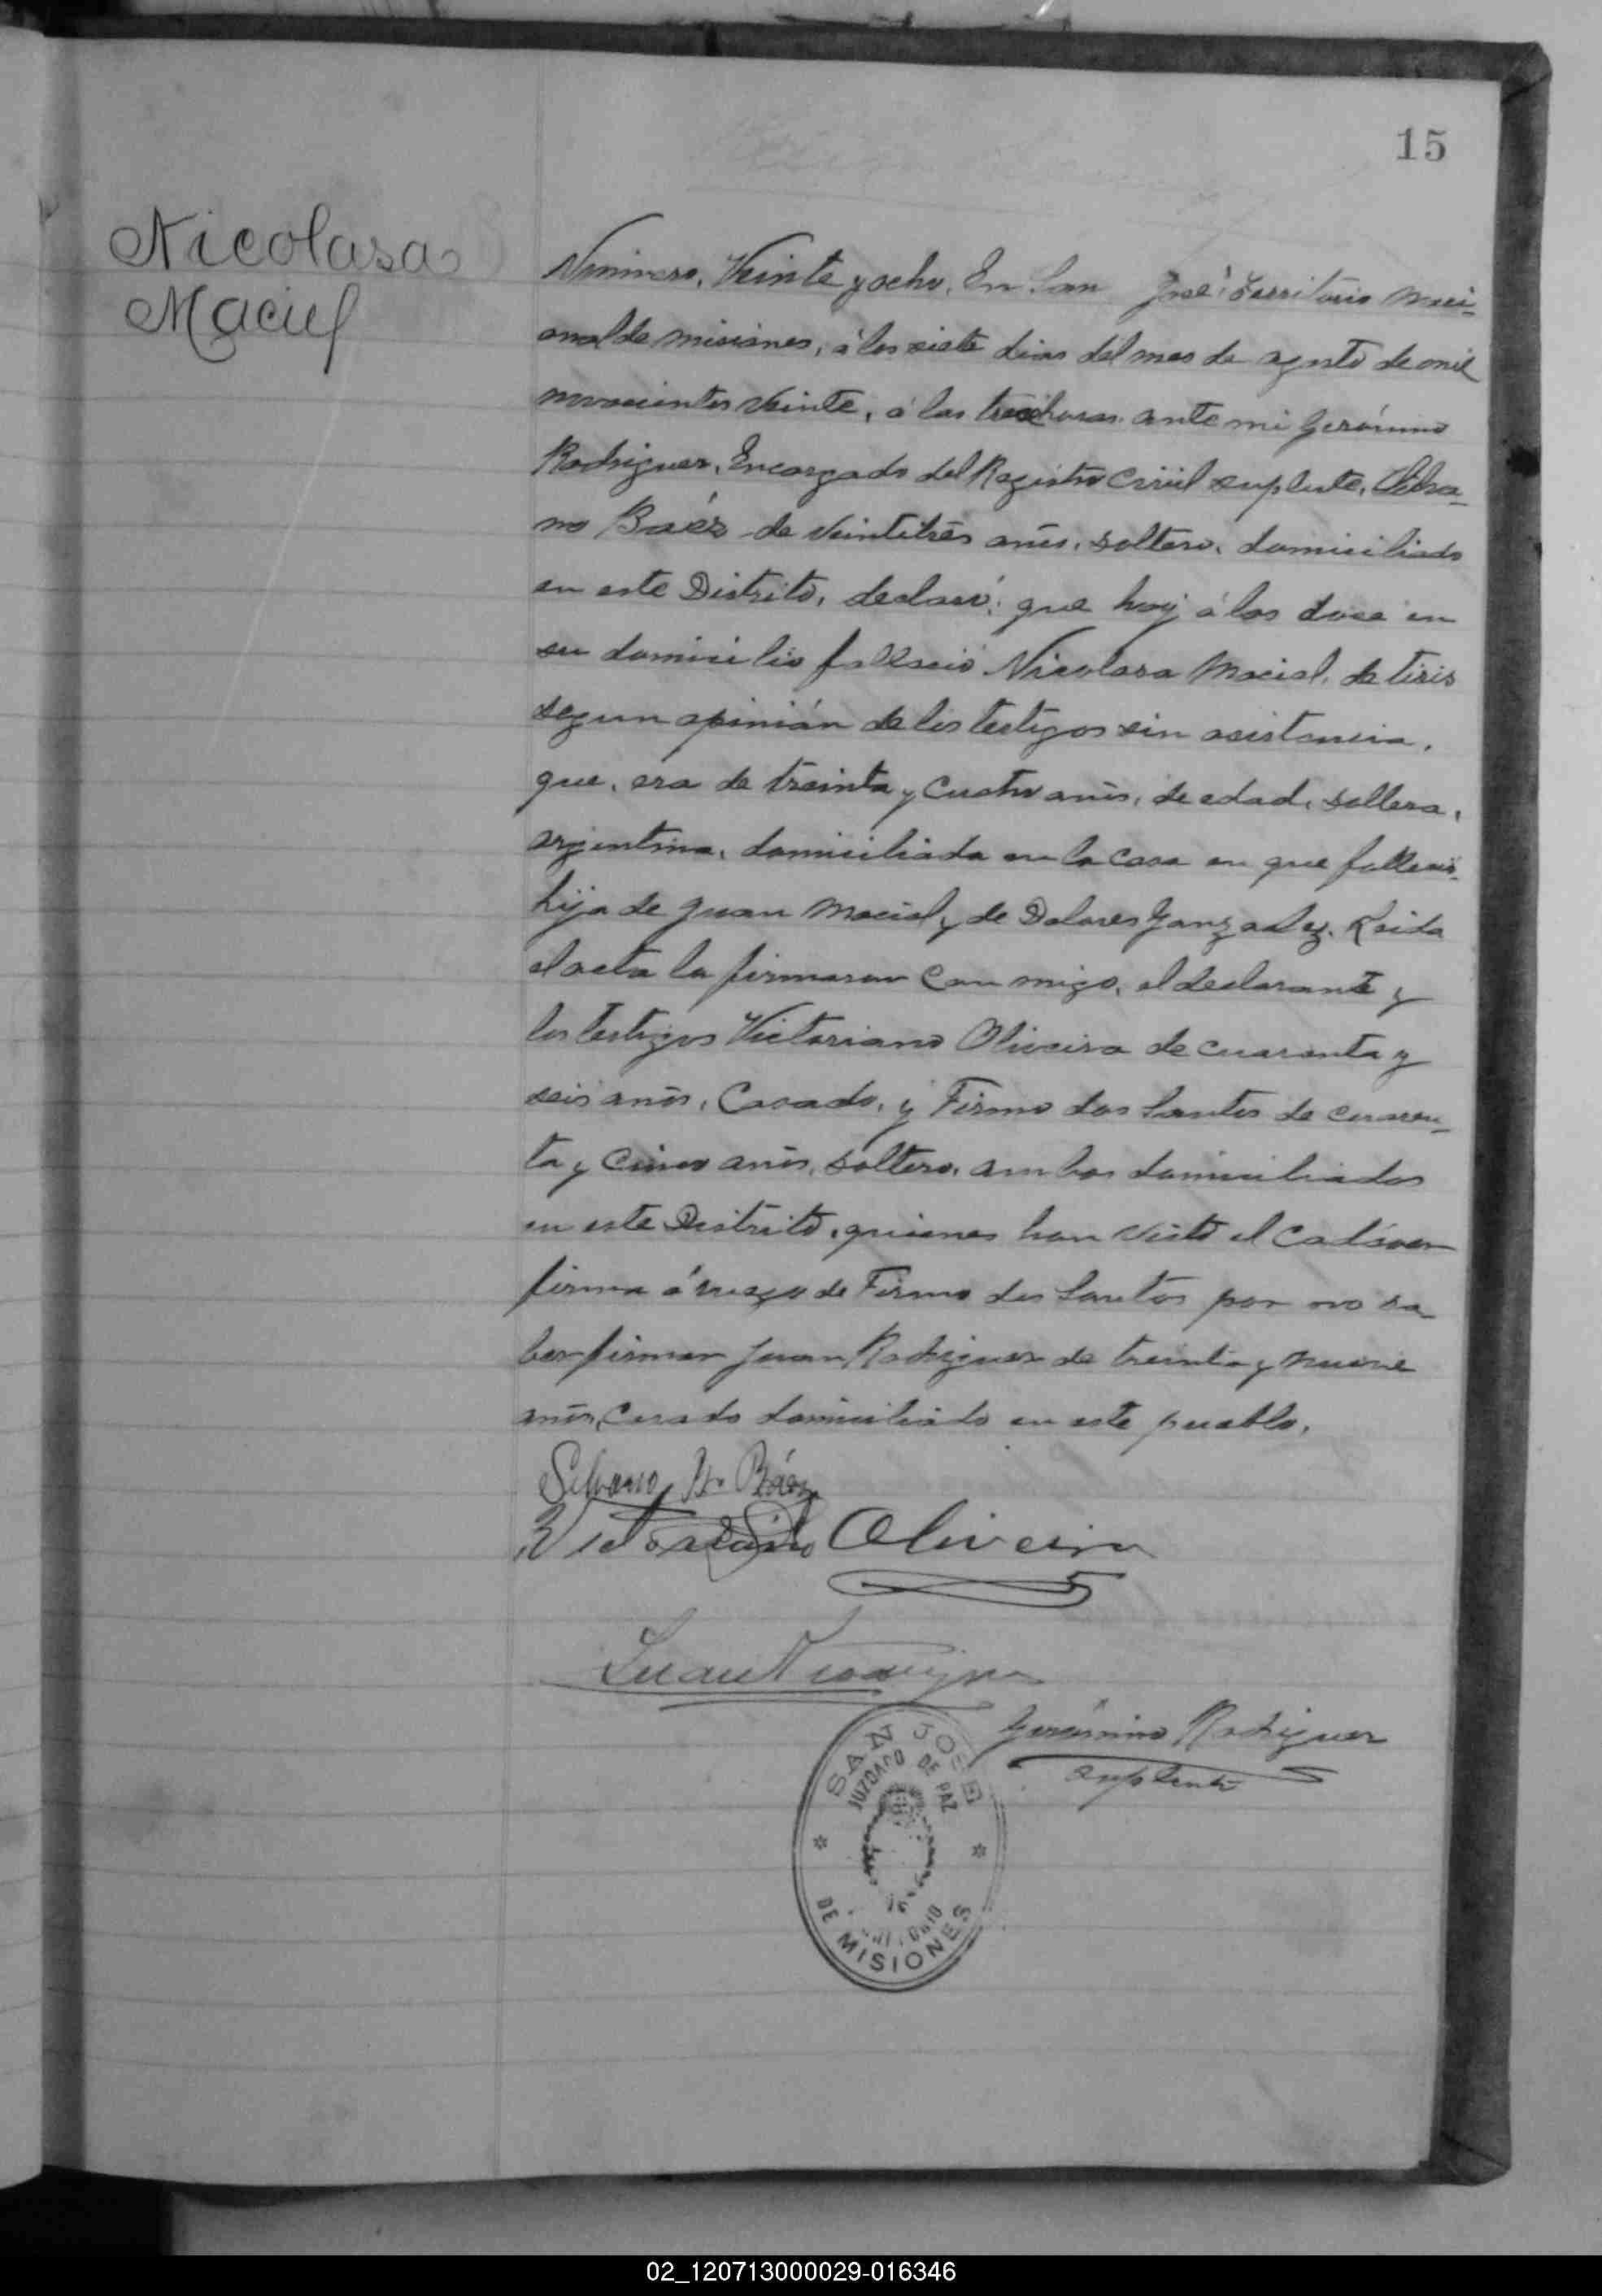 15
Nicolasa
Maciel
Número, Veinte y ocho, En San José Territorio Naci-
onal de misiones, á los siete dias del mes de agosto de mil
novecientos veinte, á las trece horas ante mi Gerónimo
Rodriguez, Encargado del Registro Civil suplente, Silva-
no Baéz de veintitrés años, soltero, domiciliado
en este Distrito, declaró: que hoy á las doce en
su domicilio falleció Nicolasa Maciel, de tisis
segun opinión de los testigos sin asistencia,
que, era de treinta y cuatro años, de edad, soltera,
argentina, domiciliada en la casa en que falleció,
hija de Juan Maciel, y de Dolores Gonzalez. Leida
el acta la firmaron con migo, el declarante y
los testigos Victoriano Oliveira de cuarenta y
seis años, Casado, y Firmo dos Santos de cuaren-
ta y cinco años, soltero, ambos domiciliados
en este Distrito, quienes han visto el Cadáver
firma á ruego de Firmo dos Santos por no sa-
ber firmar Juan Rodriguez de treinta y nueve
años, casado domiciliado en este pueblo.
Silvano Báez
Victoriano Oliveira
Juan Rodriguez
Gerónimo Rodriguez
suplente
SAN JOSE
JUZGADO DE PAZ
DE MISIONES
02_120713000029-016346